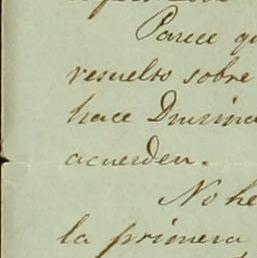 Parece qu
resuelto sobre
hace
acuerden.
No he
la primera